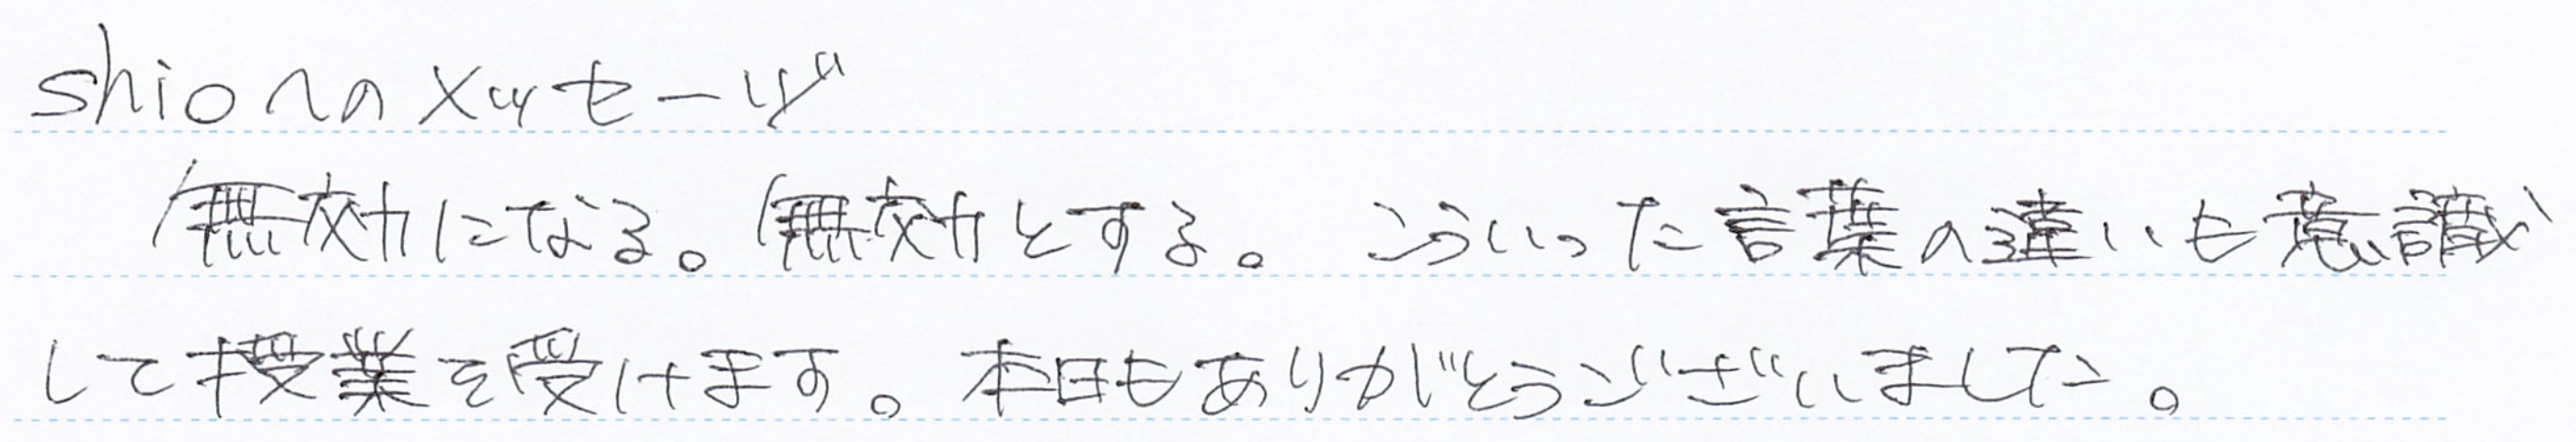 shioへのメッセージ
無効になる。無効とする。こういった言葉の違いも意識
して授業を受けます。本日もありがとうございました。